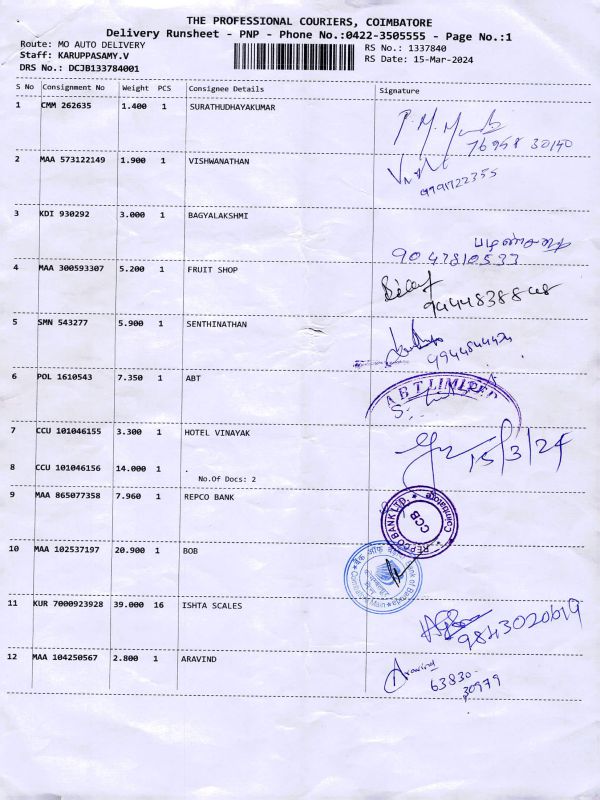 THE PROFESSIONAL COURIERS, COIMBATORE
Delivery Runsheet - PNP - Phone No.:0422-3505555 - Page No.:1
Route: MO AUTO DELIVERY RS No.: 1337840
Staff: KARUPPASAMY.V RS Date: 15-Mar-2024
DRS No.: DCJB133784001
S No Consignment No Weight PCS Consignee Details Signature
1 CMM 262635 1.400 1 SURATHUDHAYAKUMAR
2 MAA 573122149 1.900 1 VISHWANATHAN
3 KDI 930292 3.000 1 BAGYALAKSHMI
9047810533
4 MAA 300593307 5.200 1 FRUIT SHOP
5 SMN 543277 5.900 1 SENTHINATHAN
6 POL 1610543 7.350 1 ABT
ABT LIMITED
7 CCU 101046155 3.300 1 HOTEL VINAYAK
15/3/24
8 CCU 101046156 14.000 1 .
No.Of Docs: 2
9 MAA 865077358 7.960 1 REPCO BANK
REPCO BANK LTD. Coimbatore
CCB
10 MAA 102537197 20.900 1 BOB
11 KUR 7000923928 39.000 16 ISHTA SCALES
9843020619
12 MAA 104250567 2.800 1 ARAVIND
Aravind
63830
30979